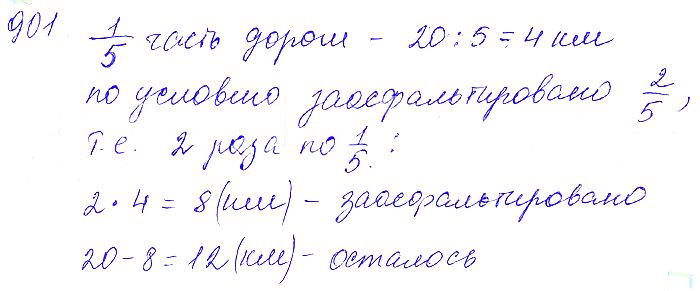 901 1/5 часть дороги - 20 : 5 = 4 км
по условию заасфальтировано 2/5,
т.е. 2 раза по 1/5 :
2 · 4 = 8 (км) - заасфальтировано
20 - 8 = 12 (км) - осталось